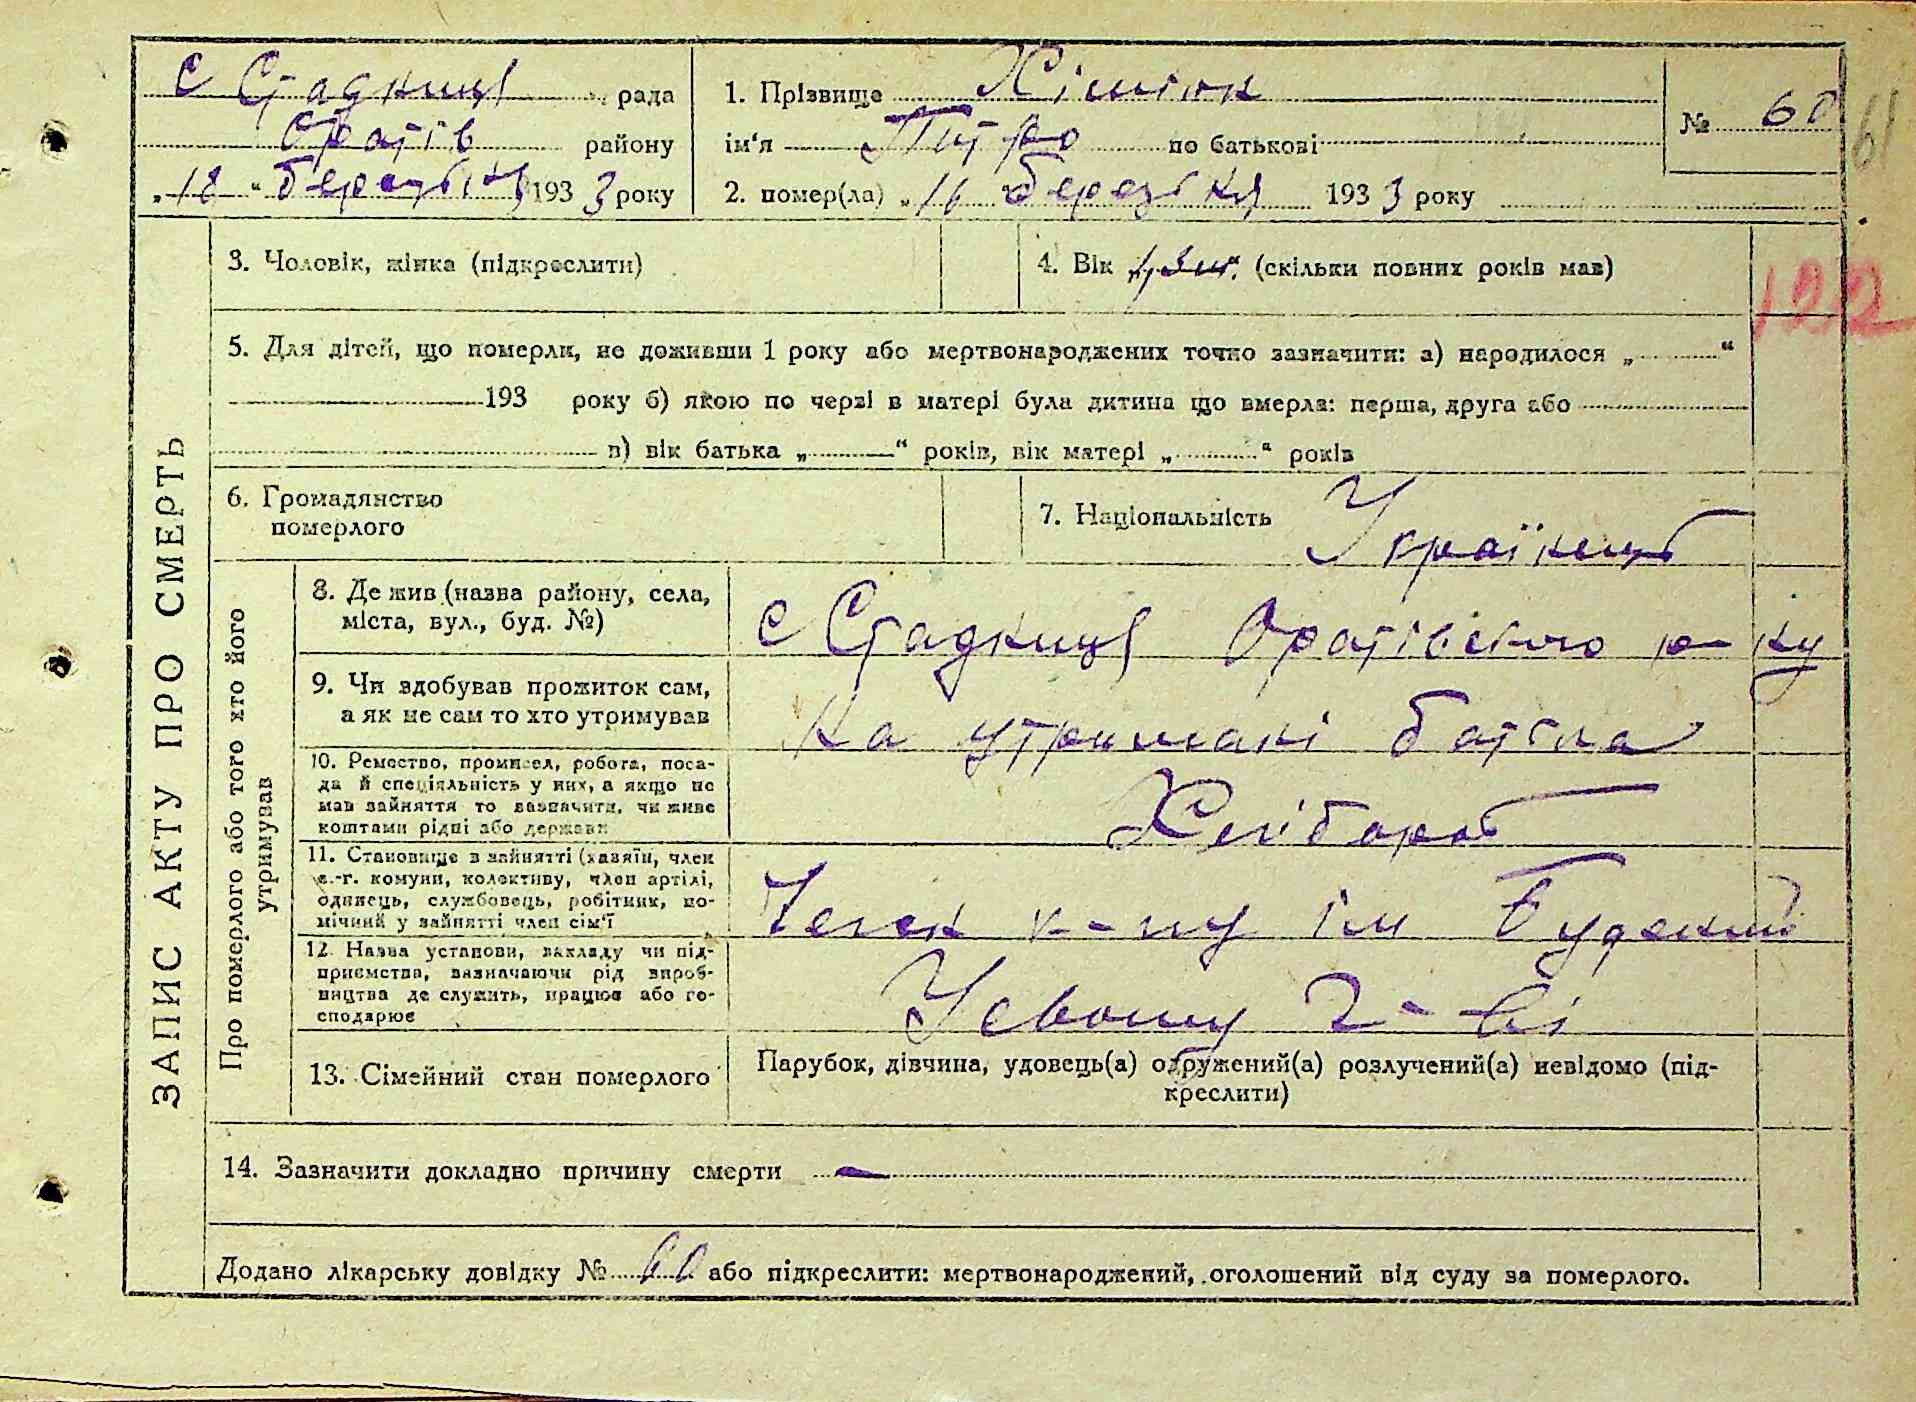 с Стадниця рада
Оратів району
„18“ березня 1933 року
1. Прізвище Хімюк
ім'я Питро по батькові
2. помер(ла) „16 березня 1933 року
№ 60
61
3. Чоловік, жінка (підкреслити)
4. Вік (скільки повних років мав)
122
5. Для дітей, що померли, не доживши 1 року або мертвонароджених точно зазначити: а) народилося „ “
193 року б) якою по черзі в матері була дитина що вмерла: перша, друга або
в) вік батька „ “ років, вік матері „ “ років
6. Громадянство
померлого
7. Національність Українець
ЗАПИС АКТУ ПРО СМЕРТЬ
Про померлого або того хто його
утримував
8. Де жив (назва району, села,
міста, вул., буд. №)
с Стадниця Оратівского р-ну
9. Чи здобував прожиток сам,
а як не сам то хто утримував
на утримані батька
10. Ремество, промисел, робота, поса-
да й спеціяльність у них, а якщо не
мав зайняття то вазначити, чи живе
коштами рідні або держави
Хлібороб
11. Становище в зайнятті (хазяїн, член
с.-г. комуни, колективу, член артілі,
одинець, службовець, робітник, по-
мічний у зайнятті член сім'ї
Член к-пу ім Будений
12. Назва установи, закладу чи під-
приємства, вазначаючи рід вироб-
ництва де служить, працює або го-
сподарює
У свому г-ві
13. Сімейний стан померлого
Парубок, дівчина, удовець(а) одружений(а) розлучений(а) невідомо (під-
креслити)
14. Зазначити докладно причину смерти —
Додано лікарську довідку № 60 або підкреслити: мертвонароджений, оголошений від суду за померлого.